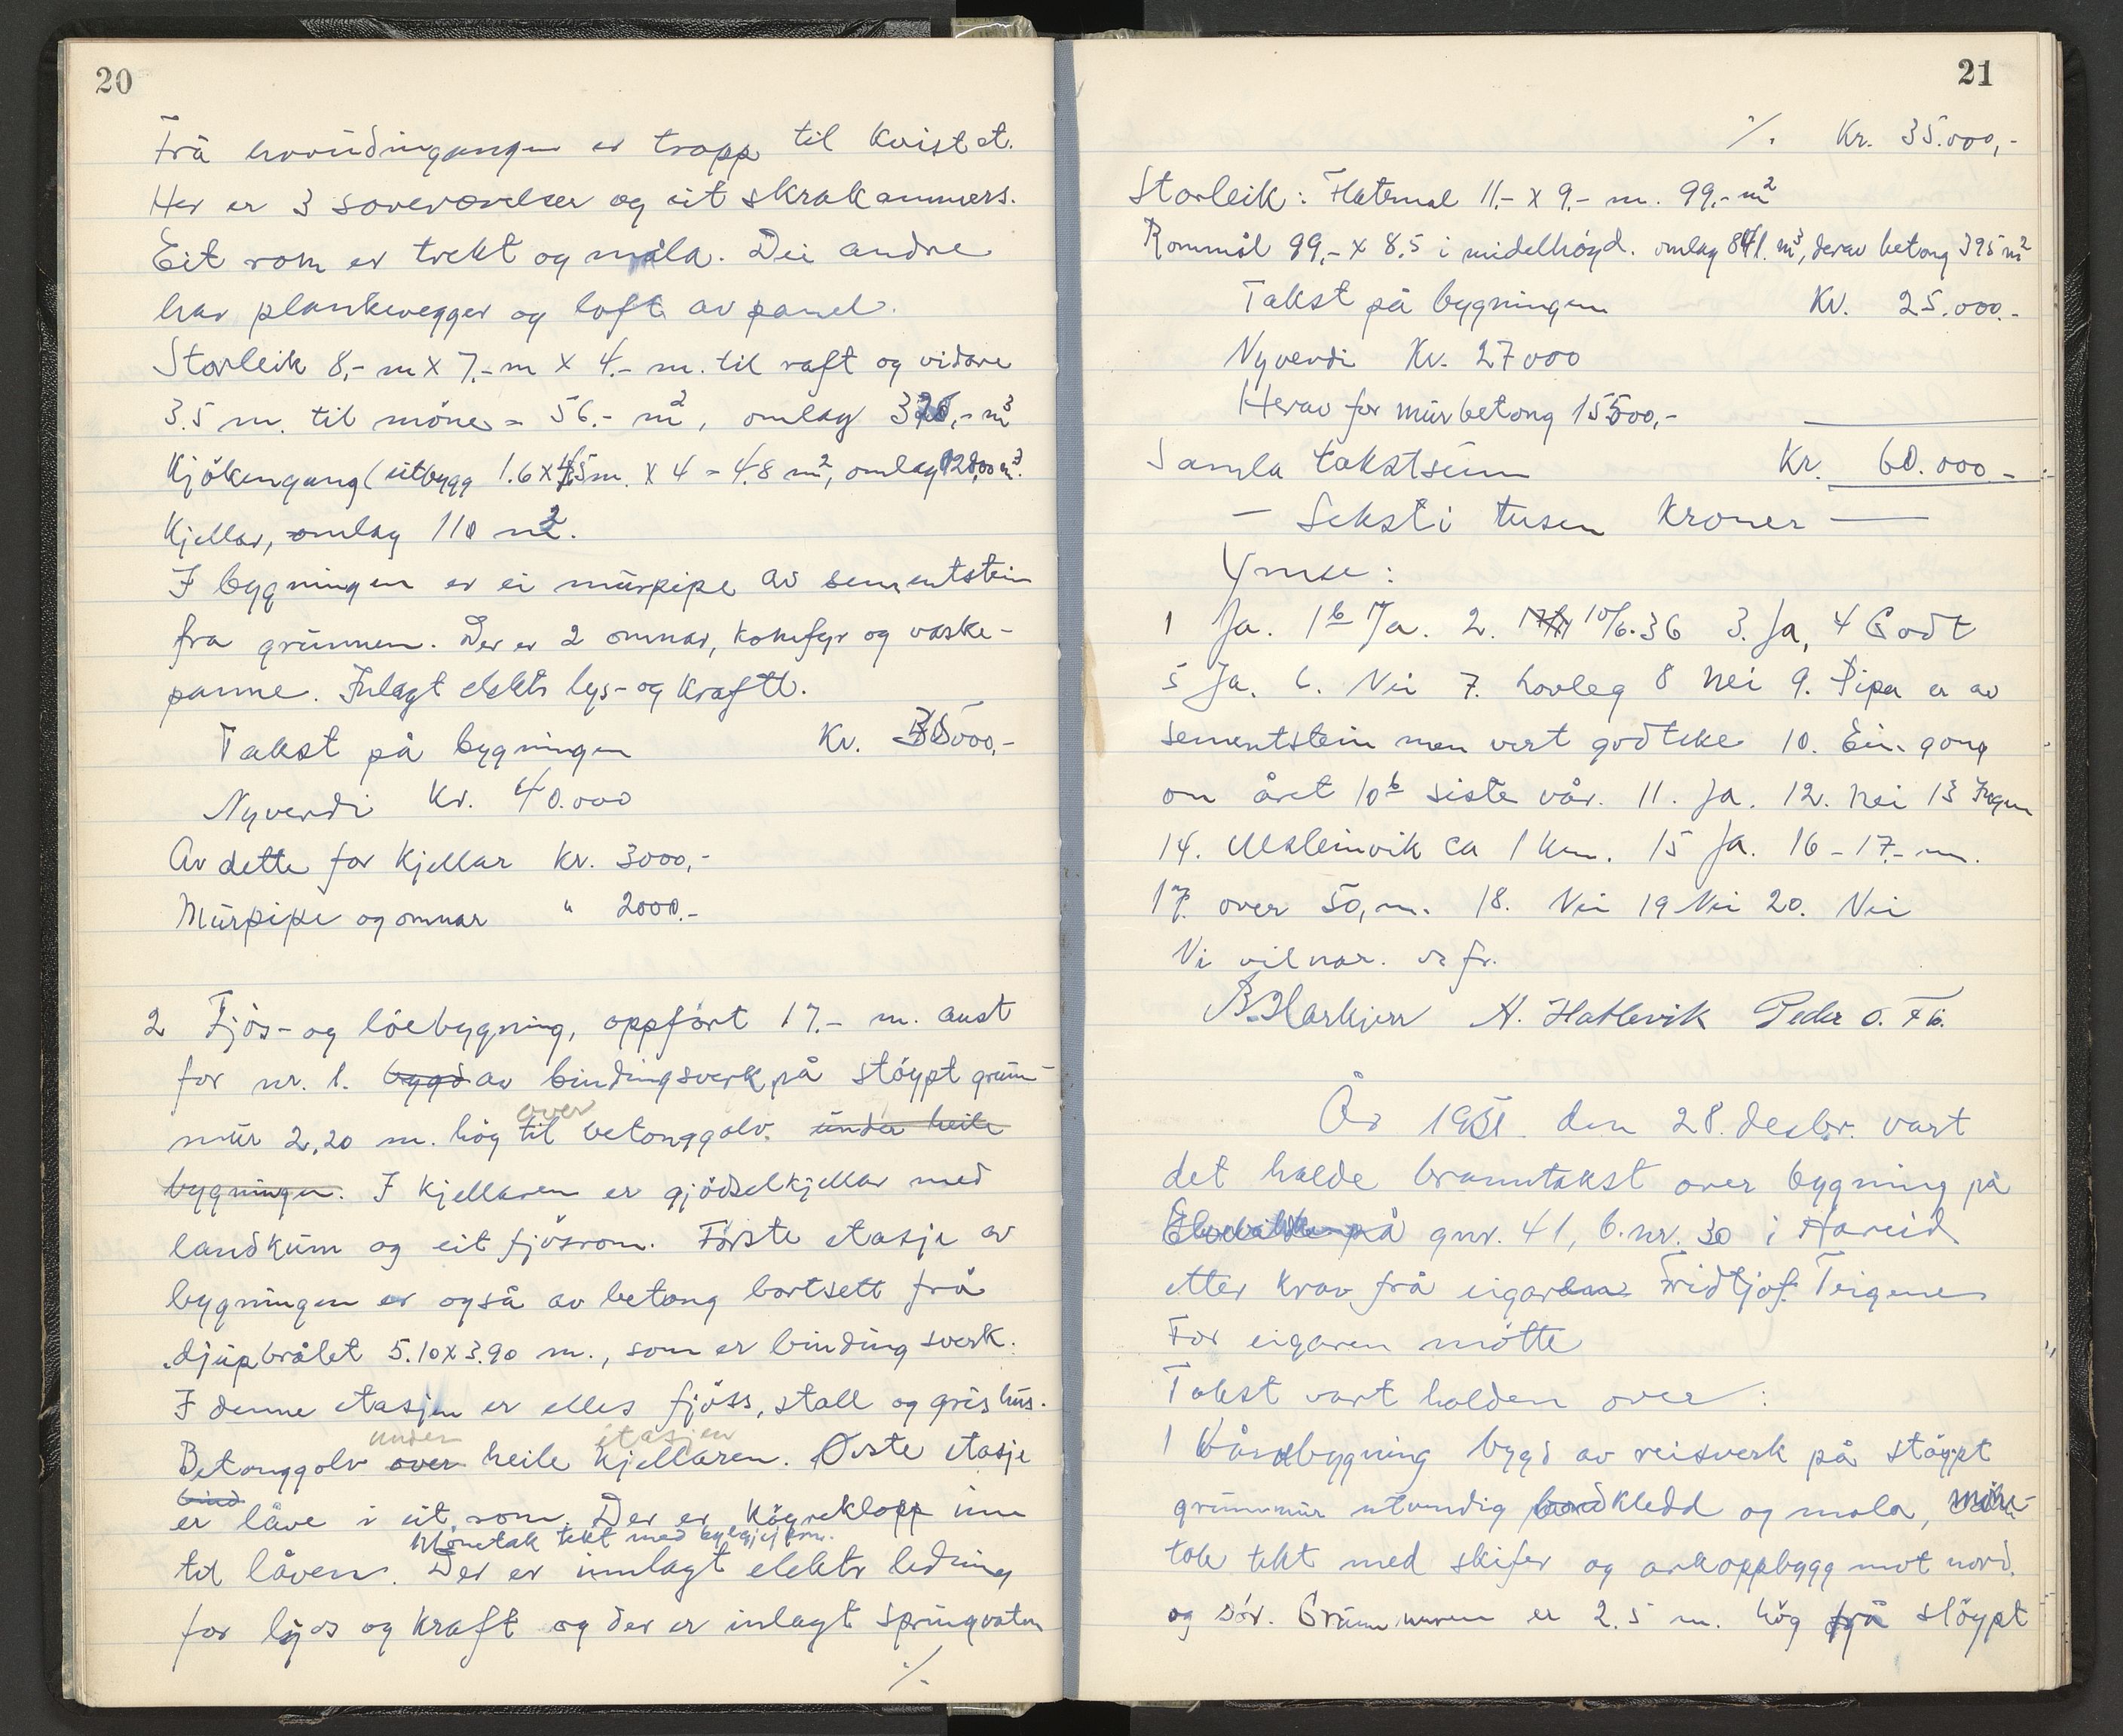 20
Frå hovudingangen er trapp til kvistet.
Her er 3 soveværelser og eit skrakammers.
Eit rom er trekt og måla. Dei andre
har plankevegger og loft av panel.
Storleik 8,- m x 7,- m x 4,- m. til raft og vidare
3.5 m. til möne = 56.- m², omlag ,- m³
Kjökengang (utbygg 1.6 x m. x 4 = 4.8 m², omlag m³.
Kjellar, omlag 110 m2.
I bygningen er ei murpipe av sementstein
fra grunnen. Der er 2 omnar, komfyr og vaske-
panne. Inlagt elektr lys- og kraftl.
Takst på bygningen Kr. 35000,-
Nyverdi Kr. 40.000
Av dette for kjellar Kr. 3000,-
Murpipe og omnar " 2000.-
2 Fjös- og löebygning, oppfört 17.- m. aust
for nr. 1. bygd av bindingsverk på stöypt grunn-
over
mur 2,20 m. hög til betonggolv. under heile
bygningen. I kjellaren er gjödselkjellar med
landkum og eit fjösrom. Förste etasje av
bygningen er også av betong bortsett frå
djupbrålet 5.10 x 3.90 m., som er bindingsverk.
I denne etasjen er elles fjöss, stall og gris hus.
under etasjen
Betonggolv over heile kjellaren. Övste etasje
bind
er låve i eit rom. Der er köyreklopp inn
Mönetak tekt med bylgjejern.
til låven. Der er innlagt elektr ledning
for lys og kraft og der er inlagt springvatn
./.
21
./. Kr. 35.000,-
Storleik: Flatemal 11.- x 9.- m. 99.- m²
Rommål 99,- x 8.5 i midelhöyd. omlag 841. m³, derav betong 395 m²
Takst på bygningen Kr. 25.000.-
Nyverdi Kr. 27000
Herav for murbetong 15500,-
Samla takstsum Kr. 60.000.-
— Seksti tusen Kroner —
Ymse:
1 Ja. 1b Ja. 2. 10/6.36 3. Ja, 4 Godt
5 Ja. 6. Nei 7. Lovleg 8 Nei 9. Pipa er av
sementstein men vert godteke 10. Ein gong
om året 10b siste vår. 11. Ja. 12. Nei 13 Ingen
14. ca 1 km. 15 Ja. 16 - 17.- m.
17. over 50,m. 18. Nei 19 Nei 20. Nei
Ni vilnar. fr.
A. Hatlevik Peder O.
År 1951 den 28. desbr. vart
det halde branntakst over bygning på
på gnr. 41, b.nr. 30 i Hareid
etter krav frå eigaren Fridtjof Teigene
For eigaren mötte
Takst vart halden over:
1 Våndbygning bygd av reisverk på stöypt
grunnmur utvendig bordkledd og mala, möne-
tak tekt med skifer og arkoppbygg mot nord.
og sör. Grunnmuren er 2.5 m. hög frå stöypt